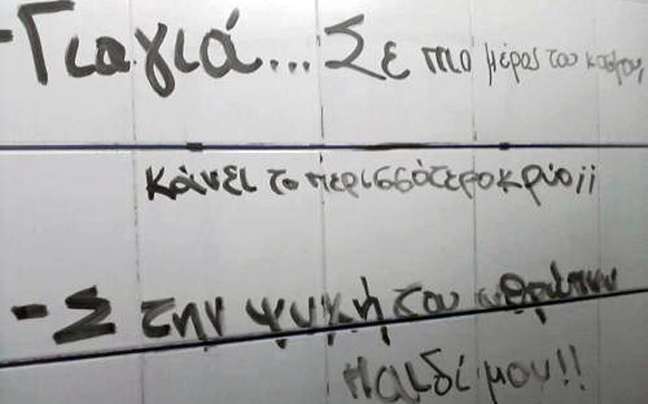 -Γιαγιά... Σε πιο μέρος του κόσμου,
κάνει το περισσότερο κρύο¡¡
-Σ την ψυχή του ανθρώπου
παιδί μου!!